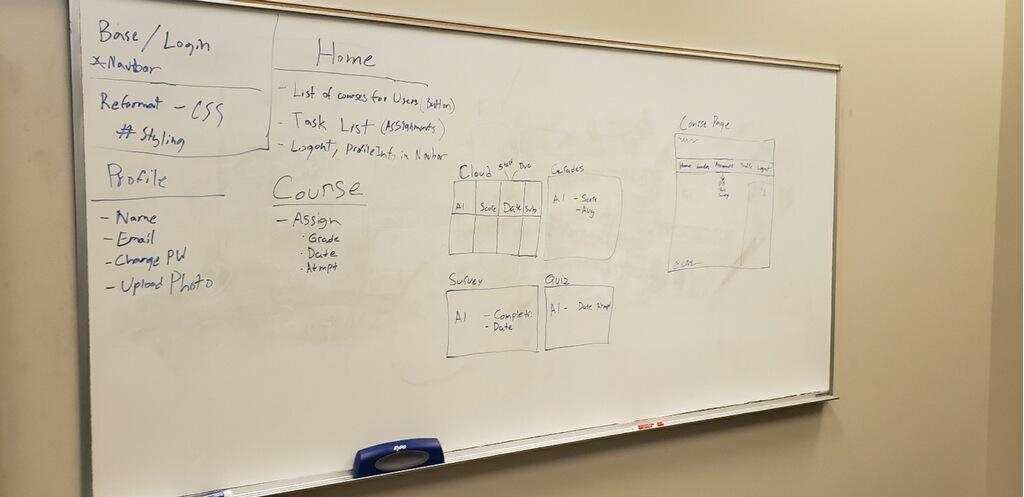 Base / Login
* Navbar
Reformat - CSS
# Styling
Profile
- Name
- Email
- Change PW
- Upload Photo
Home
- List of courses for Users (Button)
- Task List (Assignments)
- Logout, Profile Info in Navbar
Course
- Assign
· Grade
· Date
· Atmpt
Cloud
Start
Due
A1
Score
Date
Sub
Grades
A1 - Score
- Avg
Survey
A1 - Complete:
- Date
Quiz
A1 - Date Atmpt
Course Page
Home
Assignment
Profile
Logout
expo